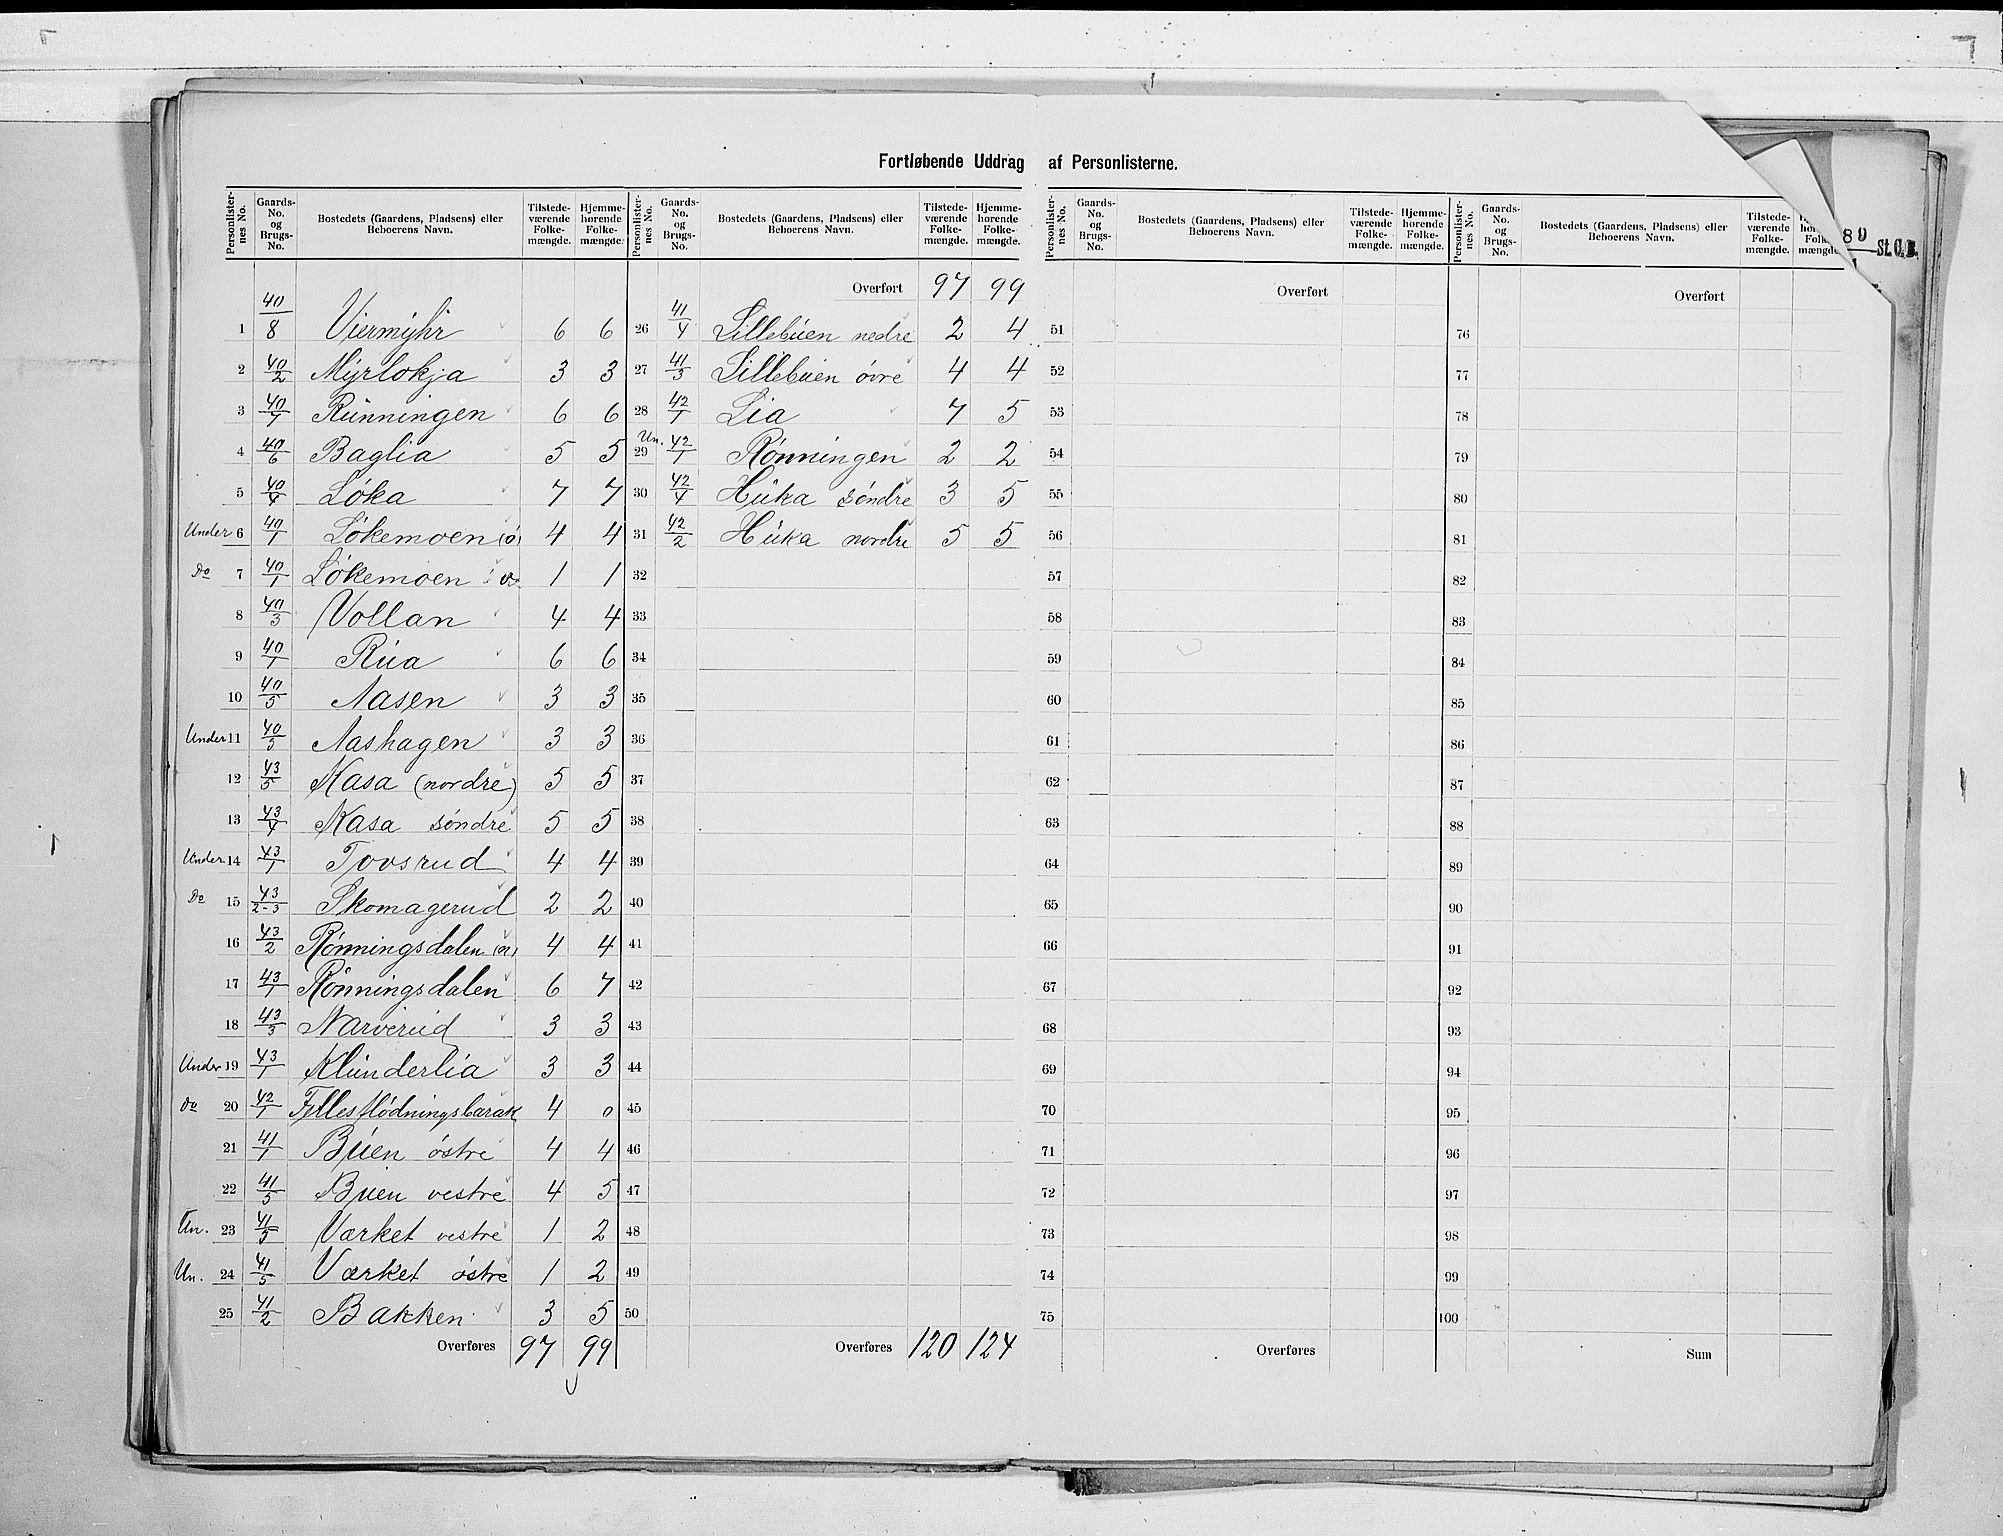 Fortløbende Uddrag af Personlisterne.
Personlister-nes No. Gaards-No. og Brugs-No. Bostedets (Gaardens, Pladsens) eller Beboerens Navn. Tilstede-værende Folke-mængde. Hjemme-hørende Folke-mængde.
1 40/8 Viermyhr 6 6
2 40/2 Myrlokja 3 3
3 40/7 Rünningen 6 6
4 40/6 Baglia 5 5
5 40/4 Løka 7 7
Under 6 40/1 Løkemoen (ø) 4 4
Do 7 40/1 Løkemoen v. 1 1
8 40/3 Vollan 4 4
9 40/1 Rua 6 6
10 40/5 Aasen 3 3
Under 11 40/5 Aashagen 3 3
12 43/5 Kasa (nordre) 5 5
13 43/4 Kasa søndre 5 5
Under 14 43/1 Tovsrud 4 4
Do 15 43/2-3 Skomagerud 2 2
16 43/2 Rønningsdalen (n) 4 4
17 43/1 Rønningsdalen 6 7
18 43/3 Narverud 3 3
Under 19 43/1 Klunderlia 3 3
Do 20 42/1 Fellesflødningsbarak 4 0
21 41/1 Buen østre 4 4
22 41/5 Buen vestre 4 5
Un. 23 41/5 Værket vestre 1 2
Un. 24 41/5 Værket østre 1 2
25 41/2 Bakken 3 5
Overføres 97 99
Personlister-nes No. Gaards-No. og Brugs-No. Bostedets (Gaardens, Pladsens) eller Beboerens Navn. Tilstede-værende Folke-mængde. Hjemme-hørende Folke-mængde.
Overført 97 99
26 41/4 Lillebuen nedre 2 4
27 41/3 Lillebuen øvre 4 4
28 42/1 Lia 7 5
Un. 29 42/1 Rønningen 2 2
30 42/4 Huka søndre 3 5
31 42/2 Huka nordre 5 5
32
33
34
35
36
37
38
39
40
41
42
43
44
45
46
47
48
49
50
Overføres 120 124
Personlister-nes No. Gaards-No. og Brugs-No. Bostedets (Gaardens, Pladsens) eller Beboerens Navn. Tilstede-værende Folke-mængde. Hjemme-hørende Folke-mængde.
Overført
51
52
53
54
55
56
57
58
59
60
61
62
63
64
65
66
67
68
69
70
71
72
73
74
75
Overføres
Personlister-nes No. Gaards-No. og Brugs-No. Bostedets (Gaardens, Pladsens) eller Beboerens Navn. Tilstede-værende Folke-mængde.
Overført
76
77
78
79
80
81
82
83
84
85
86
87
88
89
90
91
92
93
94
95
96
97
98
99
100
Sum
89
St. C. B.